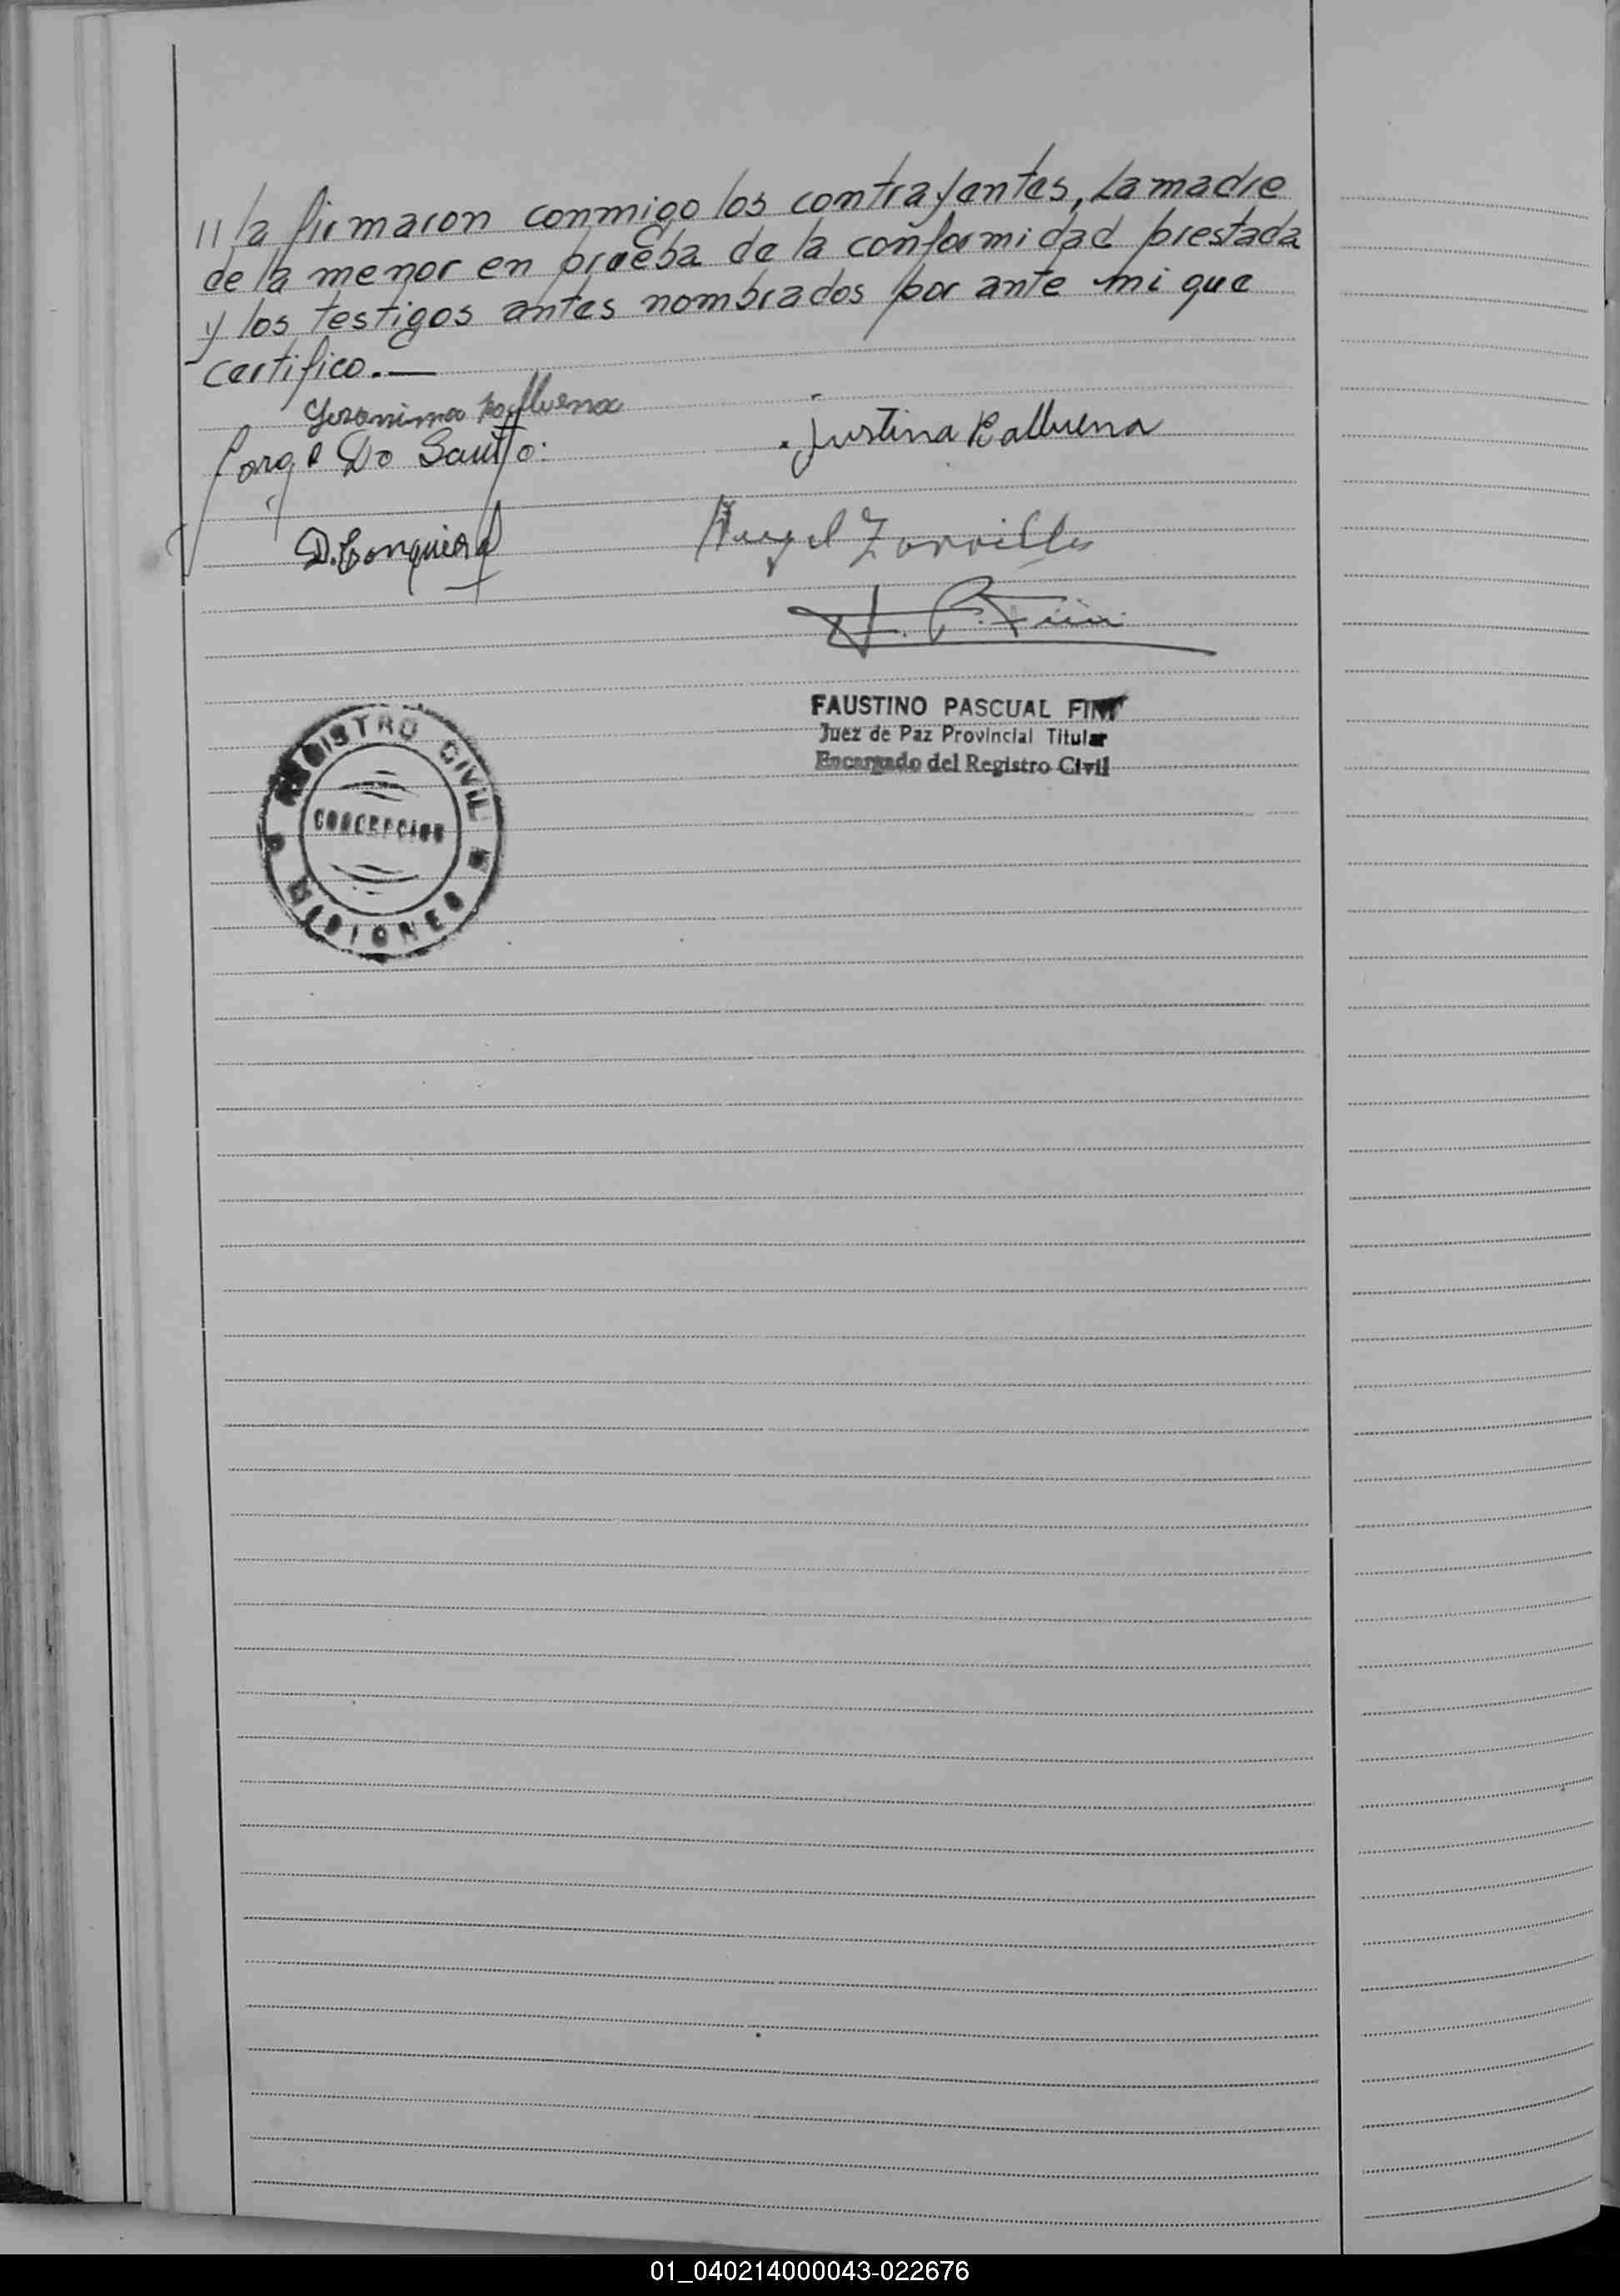 // la firmaron conmigo los contrayentes, La madre
de la menor en prueba de la conformidad prestada
y los testigos antes nombrados por ante mi que
certifico.—
Geronima Balbuena
Jorge Do Santo
Justina Balbuena
Angel Zorrilla
FAUSTINO PASCUAL FINI
Juez de Paz Provincial Titular
Encargado del Registro Civil
REGISTRO CIVIL
CONCEPCION
MISIONES
01_040214000043-022676